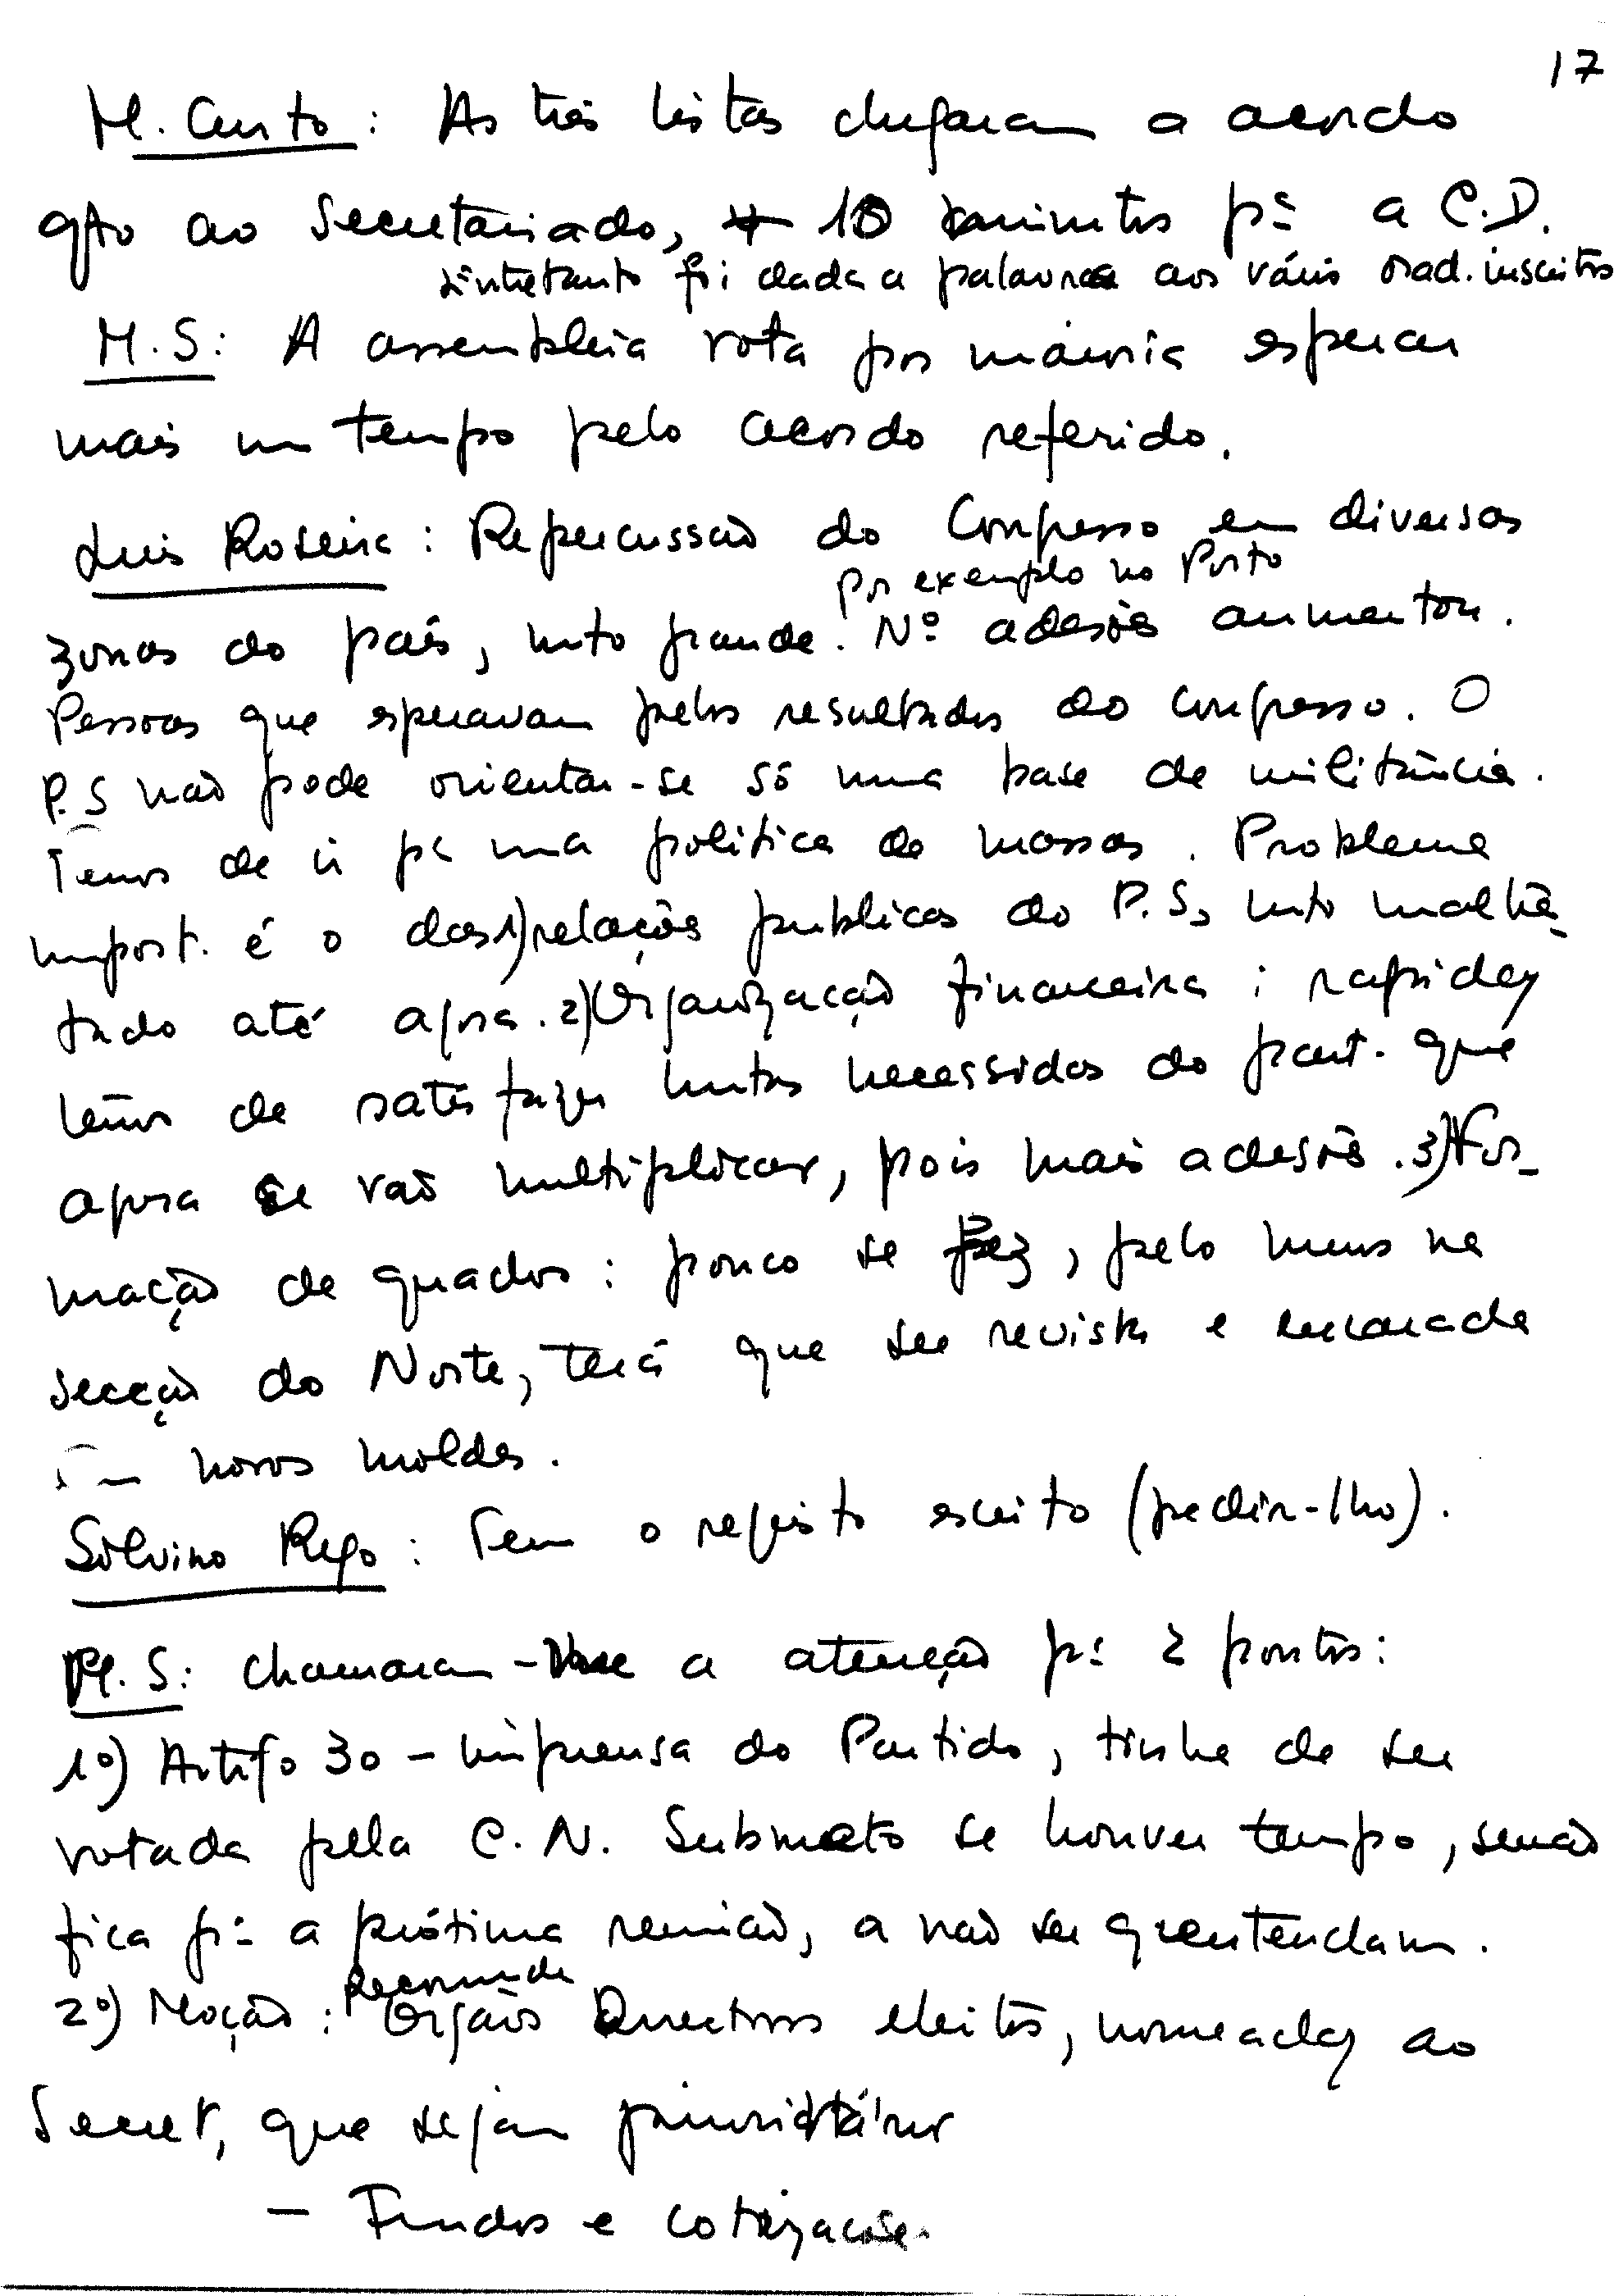 17
M. Custo: As três listas chegaram a acordo
qto ao Secretariado, + 10 minutos pª a C.D.
Entretanto foi dada a palavra aos vários orad. inscritos
M.S: A assembleia vota por maioria esperar
mais um tempo pelo acordo referido.
Luis Roseira: Repercussão do Congresso em diversas
por exemplo no Porto
zonas do país, mto grande. Nº adesões aumentou.
Pessoas que esperavam pelos resultados do congresso. O
P.S não pode orientar-se só numa base de militância.
Temos de ir pª uma política de massas. Problema
import. é o das 1) relações publicas do P.S, mto maltra-
tado até agora. 2) Organização financeira: rapidez
temos de satisfazer mtas necessidas do part. que
agora se vão multiplicar, pois mais adesões. 3) For-
mação de quadros: pouco se fez, pelo menos na
secção do Norte, terá que ser revista e encarada
em novos moldes.
Silvino Rego: Tem o registo escrito (pedir-lho).
M.S: Chamaram-me a atenção pª 2 pontos:
1º) Artigo 30 - imprensa do Partido, tinha de ser
votada pela C.N. Submeto se houver tempo, senão
fica pª a próxima reunião, a não ser q entendam.
Recomenda
2º) Moção: Orgãos Directivos eleitos, nomeadaz ao
Secret, que sejam prioritários
- Fundos e cotizações.